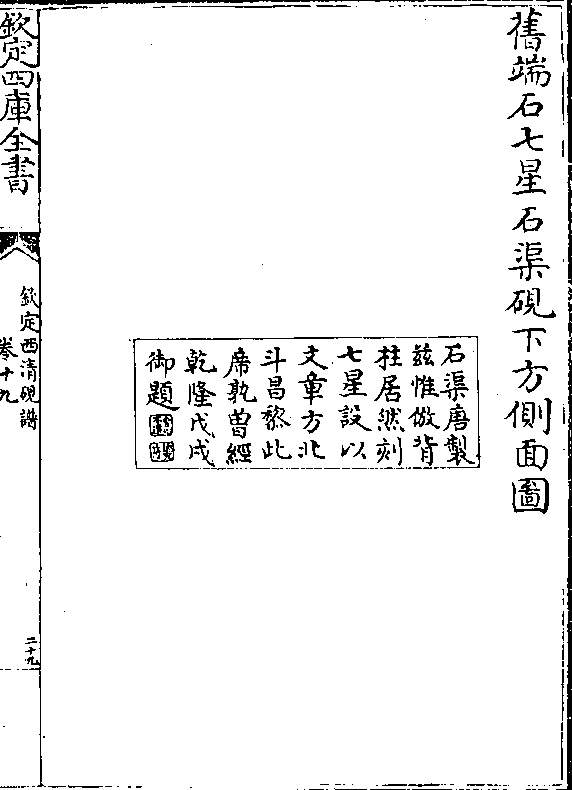 舊端石七星石渠硯下方側面圖
石渠唐製
茲惟倣背
柱居然刻
七星設以
文章方北
斗昌黎此
席孰曾經
乾隆戊戌
御題
欽定四庫全書
欽定西清硯譜
卷十九
二十九